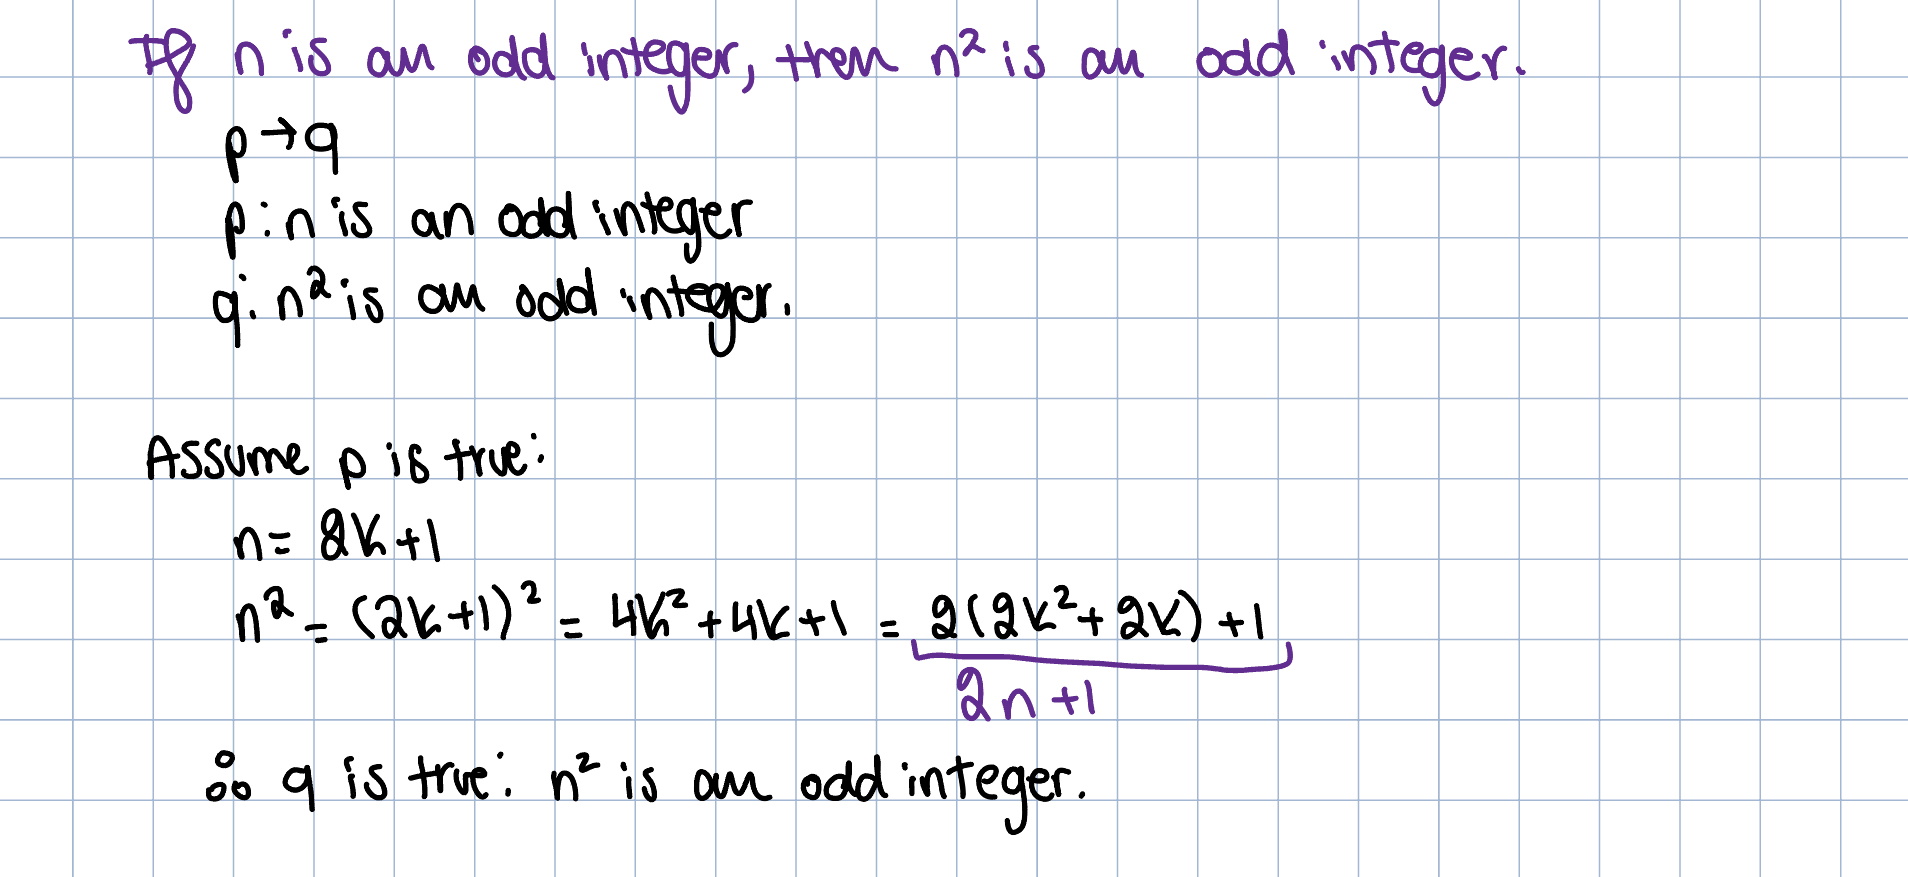 If n is an odd integer, then n² is an odd integer.
p→q
p: n is an odd integer
q: n² is an odd integer.
Assume p is true:
n= 2k+1
n² = (2k+1)² = 4k²+4k+1 = 2(2k²+2k)+1
2n+1
∴ q is true: n² is an odd integer.